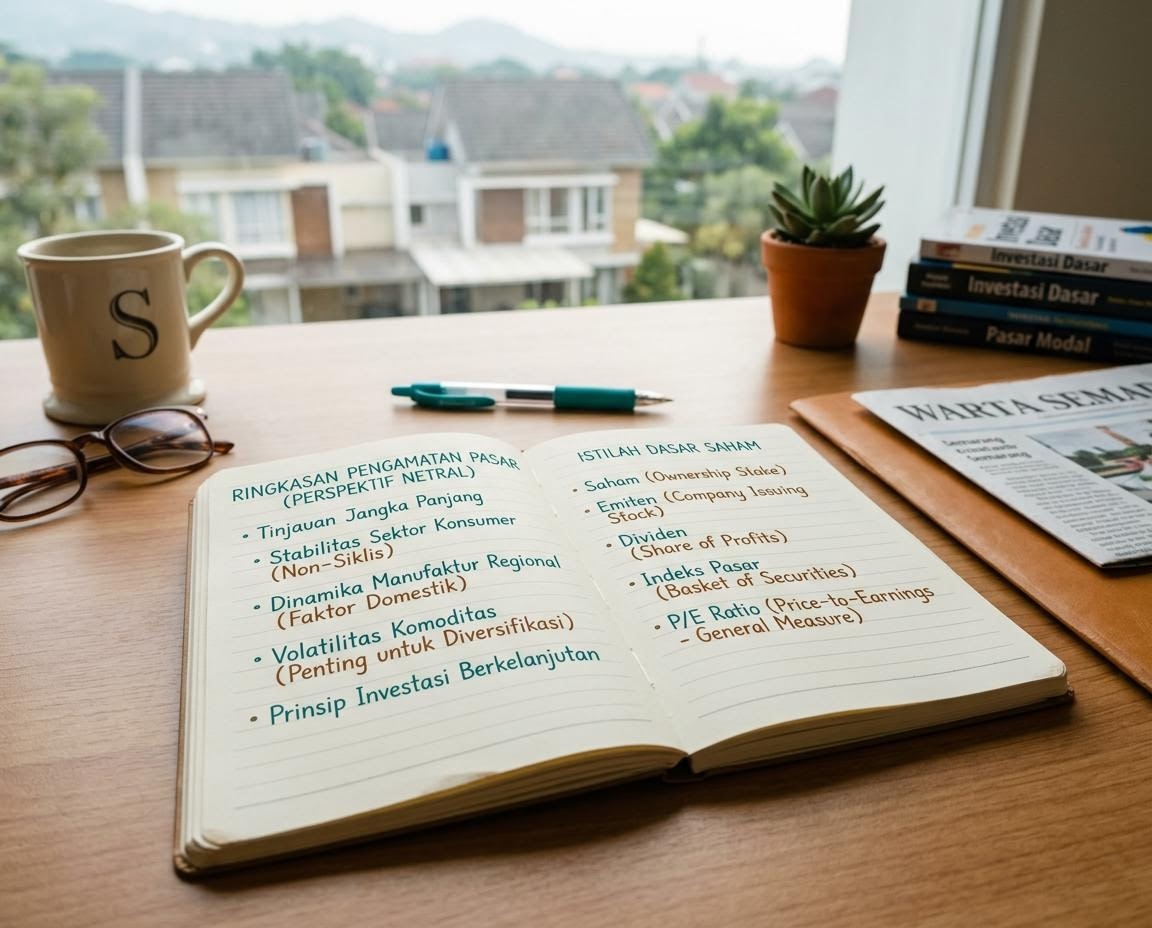 S
RINGKASAN PENGAMATAN PASAR
(PERSPEKTIF NETRAL)
• Tinjauan Jangka Panjang
• Stabilitas Sektor Konsumer
(Non-Siklis)
• Dinamika Manufaktur Regional
(Faktor Domestik)
• Volatilitas Komoditas
(Penting untuk Diversifikasi)
• Prinsip Investasi Berkelanjutan
ISTILAH DASAR SAHAM
• Saham (Ownership Stake)
• Emiten (Company Issuing
Stock)
• Dividen
(Share of Profits)
• Indeks Pasar
(Basket of Securities)
• P/E Ratio (Price-to-Earnings
- General Measure)
Investasi Dasar
Investasi Dasar
Pasar Modal
WARTA SEMAR
Semarang
Semarang